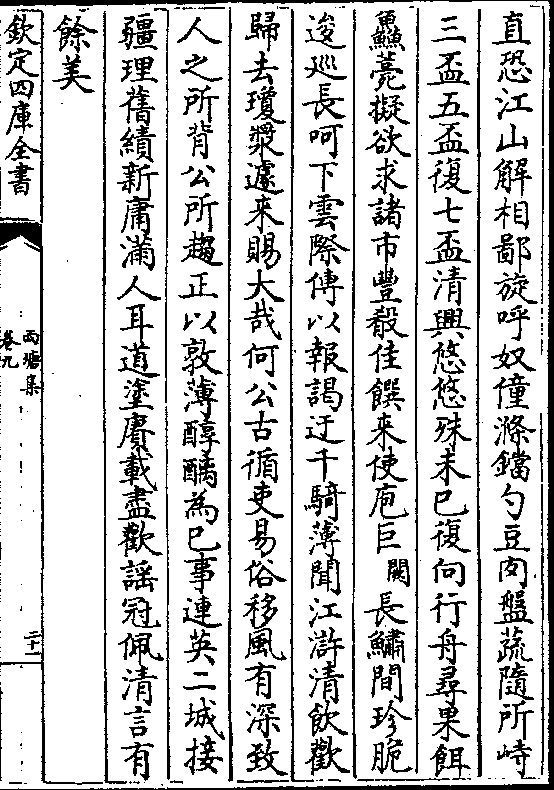 直恐江山解相鄙旋呼奴僮滌鐺勺豆肉盤蔬隨所峙
三盃五盃復七盃清興悠悠殊未已復向行舟尋果餌
鱻薧擬欲求諸市豐殽佳饌來使庖巨闕長鱐間珍脆
逡巡長呵下雲際傳以報謁迂千騎薄聞江滸清飲歡
歸去瓊漿遽來賜大哉何公古循吏易俗移風有深致
人之所背公所趨正以敦薄醇醨為已事連英二城接
疆理舊績新庸滿人耳道塗賡載盡歡謡冠佩清言有
餘美
欽定四庫全書
西塘集
卷九
二十